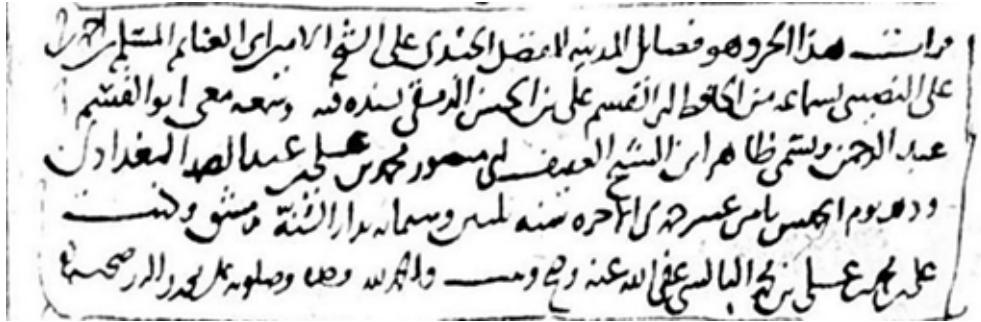 قرأت هذا الجزء وهو فضائل المدينة للمفضل الجندي على الشيخ الامير ابي الغنائم المسلم بن احمد بن
على النصيبي بسماعه من الحافظ ابي القسم على بن الحسن الدمشقي بسنده فيه وسمعه معي ابو القسم
عبد الرحمن ويسمى ظاهر ابن الشيخ العفيف ابي منصور محمد بن على بن عبد الصمد البغدادي
وذلك يوم الخميس ثامن عشر جمادى الاخرة سنه ثلثين وستمائه بدار السنة بدمشق وكتب
على بن محمد بن على بن محمد البالسي عفى الله عنه والحمد لله وحده وصلوته على محمد واله وصحبه